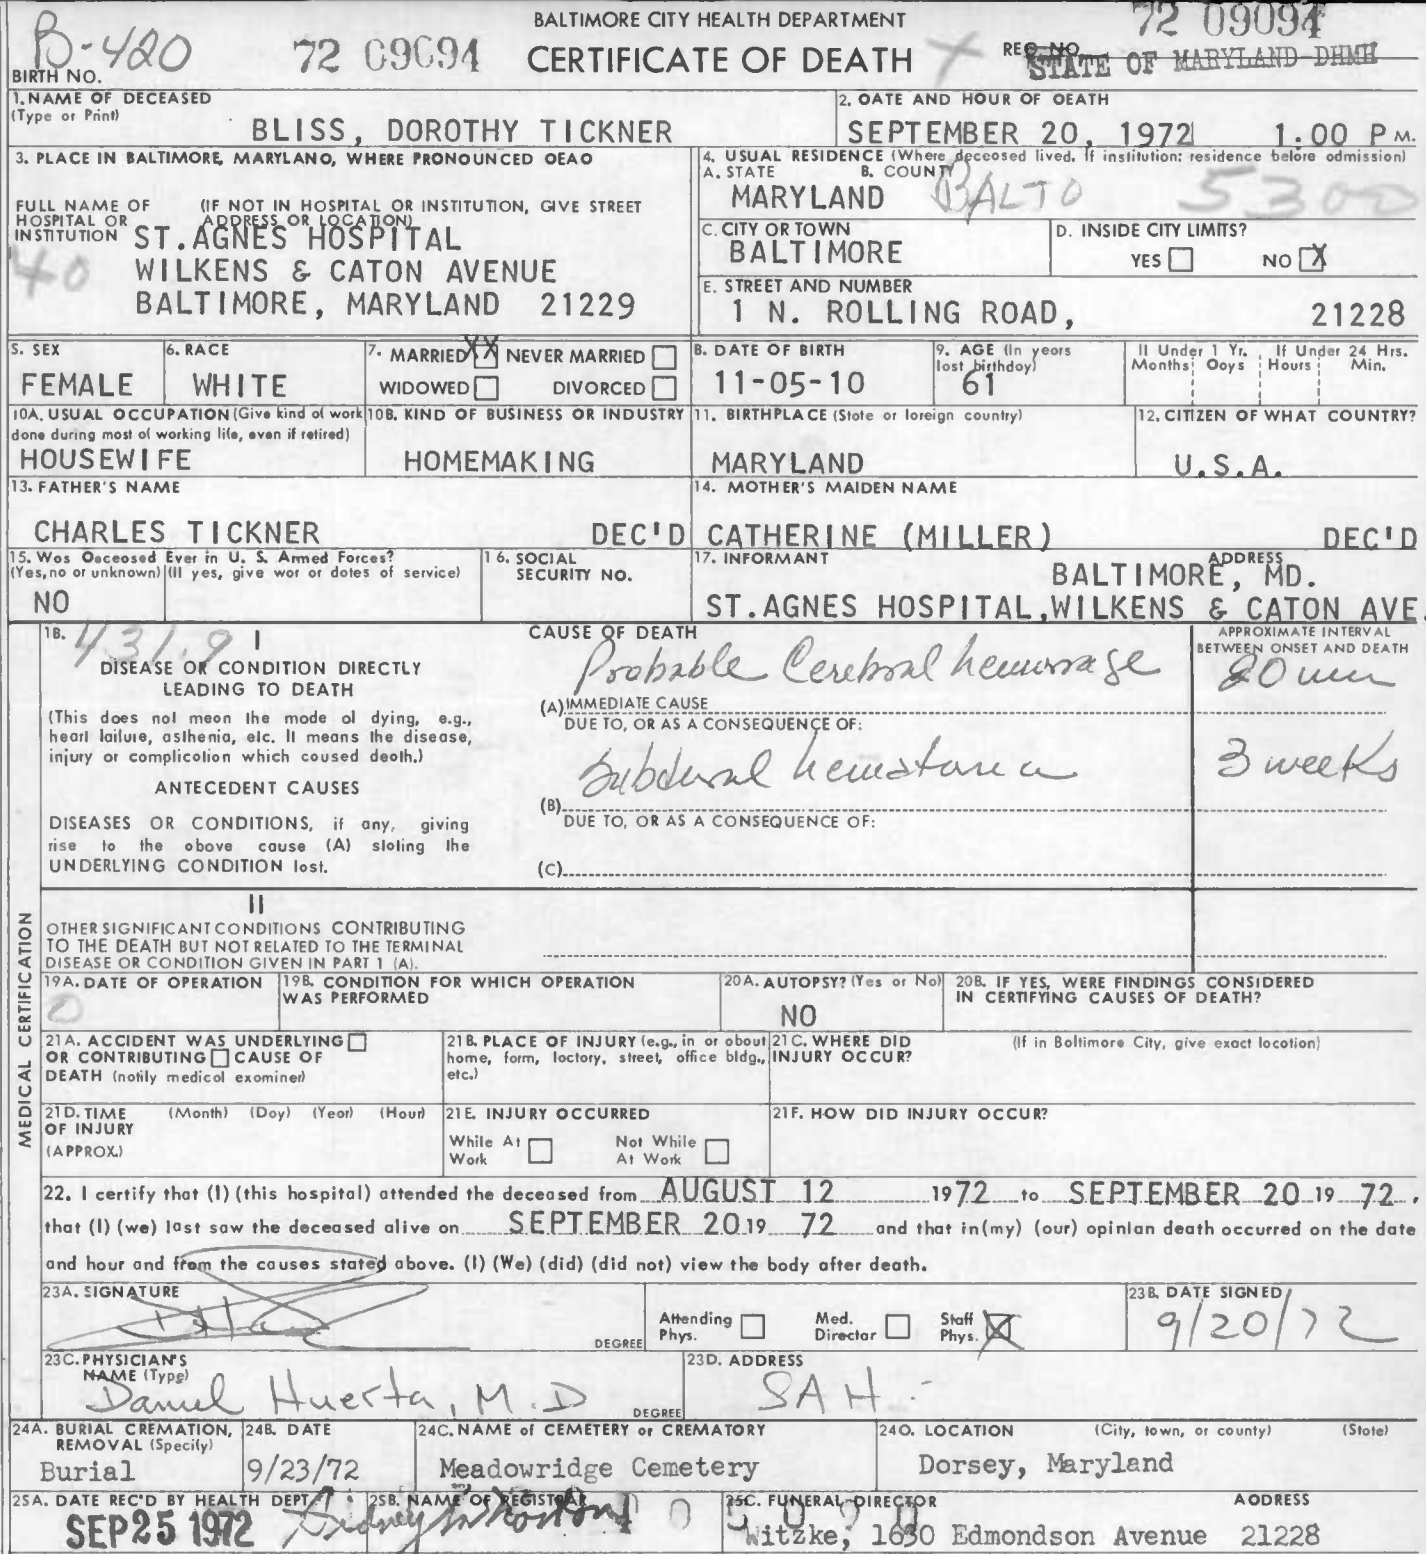 BALTIMORE CITY HEALTH DEPARTMENT
CERTIFICATE OF DEATH
B-420
72 09094
72 09094
REG. NO.
STATE OF MARYLAND-DHMH
BIRTH NO.
1. NAME OF DECEASED
(Type or Print)
BLISS, DOROTHY TICKNER
2. DATE AND HOUR OF DEATH
SEPTEMBER 20, 1972 1:00 P M.
3. PLACE IN BALTIMORE, MARYLAND, WHERE PRONOUNCED DEAD
FULL NAME OF HOSPITAL OR INSTITUTION
(IF NOT IN HOSPITAL OR INSTITUTION, GIVE STREET ADDRESS OR LOCATION)
40
ST.AGNES HOSPITAL
WILKENS & CATON AVENUE
BALTIMORE, MARYLAND 21229
4. USUAL RESIDENCE (Where deceased lived. If institution: residence before admission)
A. STATE B. COUNTY
MARYLAND BALTO 5300
C. CITY OR TOWN
BALTIMORE
D. INSIDE CITY LIMITS?
YES NO X
E. STREET AND NUMBER
1 N. ROLLING ROAD, 21228
5. SEX
FEMALE
6. RACE
WHITE
7. MARRIED XX NEVER MARRIED
WIDOWED DIVORCED
8. DATE OF BIRTH
11-05-10
9. AGE (In years last birthday)
61
If Under 1 Yr. If Under 24 Hrs.
Months Days Hours Min.
10A. USUAL OCCUPATION (Give kind of work done during most of working life, even if retired)
HOUSEWIFE
10B. KIND OF BUSINESS OR INDUSTRY
HOMEMAKING
11. BIRTHPLACE (State or foreign country)
MARYLAND
12. CITIZEN OF WHAT COUNTRY?
U.S.A.
13. FATHER'S NAME
CHARLES TICKNER DEC'D
14. MOTHER'S MAIDEN NAME
CATHERINE (MILLER) DEC'D
15. Was Deceased Ever in U. S. Armed Forces?
(Yes, no or unknown) (If yes, give war or dates of service)
NO
16. SOCIAL SECURITY NO.
17. INFORMANT ADDRESS
BALTIMORE, MD.
ST.AGNES HOSPITAL, WILKENS & CATON AVE.
MEDICAL CERTIFICATION
18. 431.9 I
DISEASE OR CONDITION DIRECTLY
LEADING TO DEATH
(This does not mean the mode of dying, e.g.,
heart failure, asthenia, etc. It means the disease,
injury or complication which caused death.)
ANTECEDENT CAUSES
DISEASES OR CONDITIONS, if any, giving
rise to the above cause (A) stating the
UNDERLYING CONDITION last.
CAUSE OF DEATH
APPROXIMATE INTERVAL
BETWEEN ONSET AND DEATH
Probable Cerebral hemorrage
(A) IMMEDIATE CAUSE
DUE TO, OR AS A CONSEQUENCE OF:
Subdural hematoma 3 weeks
(B)
DUE TO, OR AS A CONSEQUENCE OF:
(C)
II
OTHER SIGNIFICANT CONDITIONS CONTRIBUTING
TO THE DEATH BUT NOT RELATED TO THE TERMINAL
DISEASE OR CONDITION GIVEN IN PART 1 (A).
19A. DATE OF OPERATION
0
19B. CONDITION FOR WHICH OPERATION
WAS PERFORMED
20A. AUTOPSY? (Yes or No)
NO
20B. IF YES, WERE FINDINGS CONSIDERED
IN CERTIFYING CAUSES OF DEATH?
21A. ACCIDENT WAS UNDERLYING
OR CONTRIBUTING CAUSE OF
DEATH (notify medical examiner)
21B. PLACE OF INJURY (e.g., in or about
home, farm, factory, street, office bldg.,
etc.)
21C. WHERE DID (If in Baltimore City, give exact location)
INJURY OCCUR?
21D. TIME (Month) (Day) (Year) (Hour)
OF INJURY
(APPROX.)
21E. INJURY OCCURRED
While At Work Not While At Work
21F. HOW DID INJURY OCCUR?
22. I certify that (I) (this hospital) attended the deceased from AUGUST 12 1972 to SEPTEMBER 20 19 72,
that (I) (we) last saw the deceased alive on SEPTEMBER 20 19 72 and that in(my) (our) opinion death occurred on the date
and hour and from the causes stated above. (I) (We) (did) (did not) view the body after death.
23A. SIGNATURE
DEGREE
Attending Phys. Med. Director Staff Phys. X
23B. DATE SIGNED
9/20/72
23C. PHYSICIAN'S
NAME (Type)
Daniel Huerta, M.D
DEGREE
23D. ADDRESS
SAH
24A. BURIAL CREMATION,
REMOVAL (Specify)
Burial
24B. DATE
9/23/72
24C. NAME of CEMETERY or CREMATORY
Meadowridge Cemetery
24D. LOCATION (City, town, or county) (State)
Dorsey, Maryland
25A. DATE REC'D BY HEALTH DEPT.
SEP 25 1972
25B. NAME OF REGISTRAR
25C. FUNERAL DIRECTOR ADDRESS
Witzke, 1630 Edmondson Avenue 21228